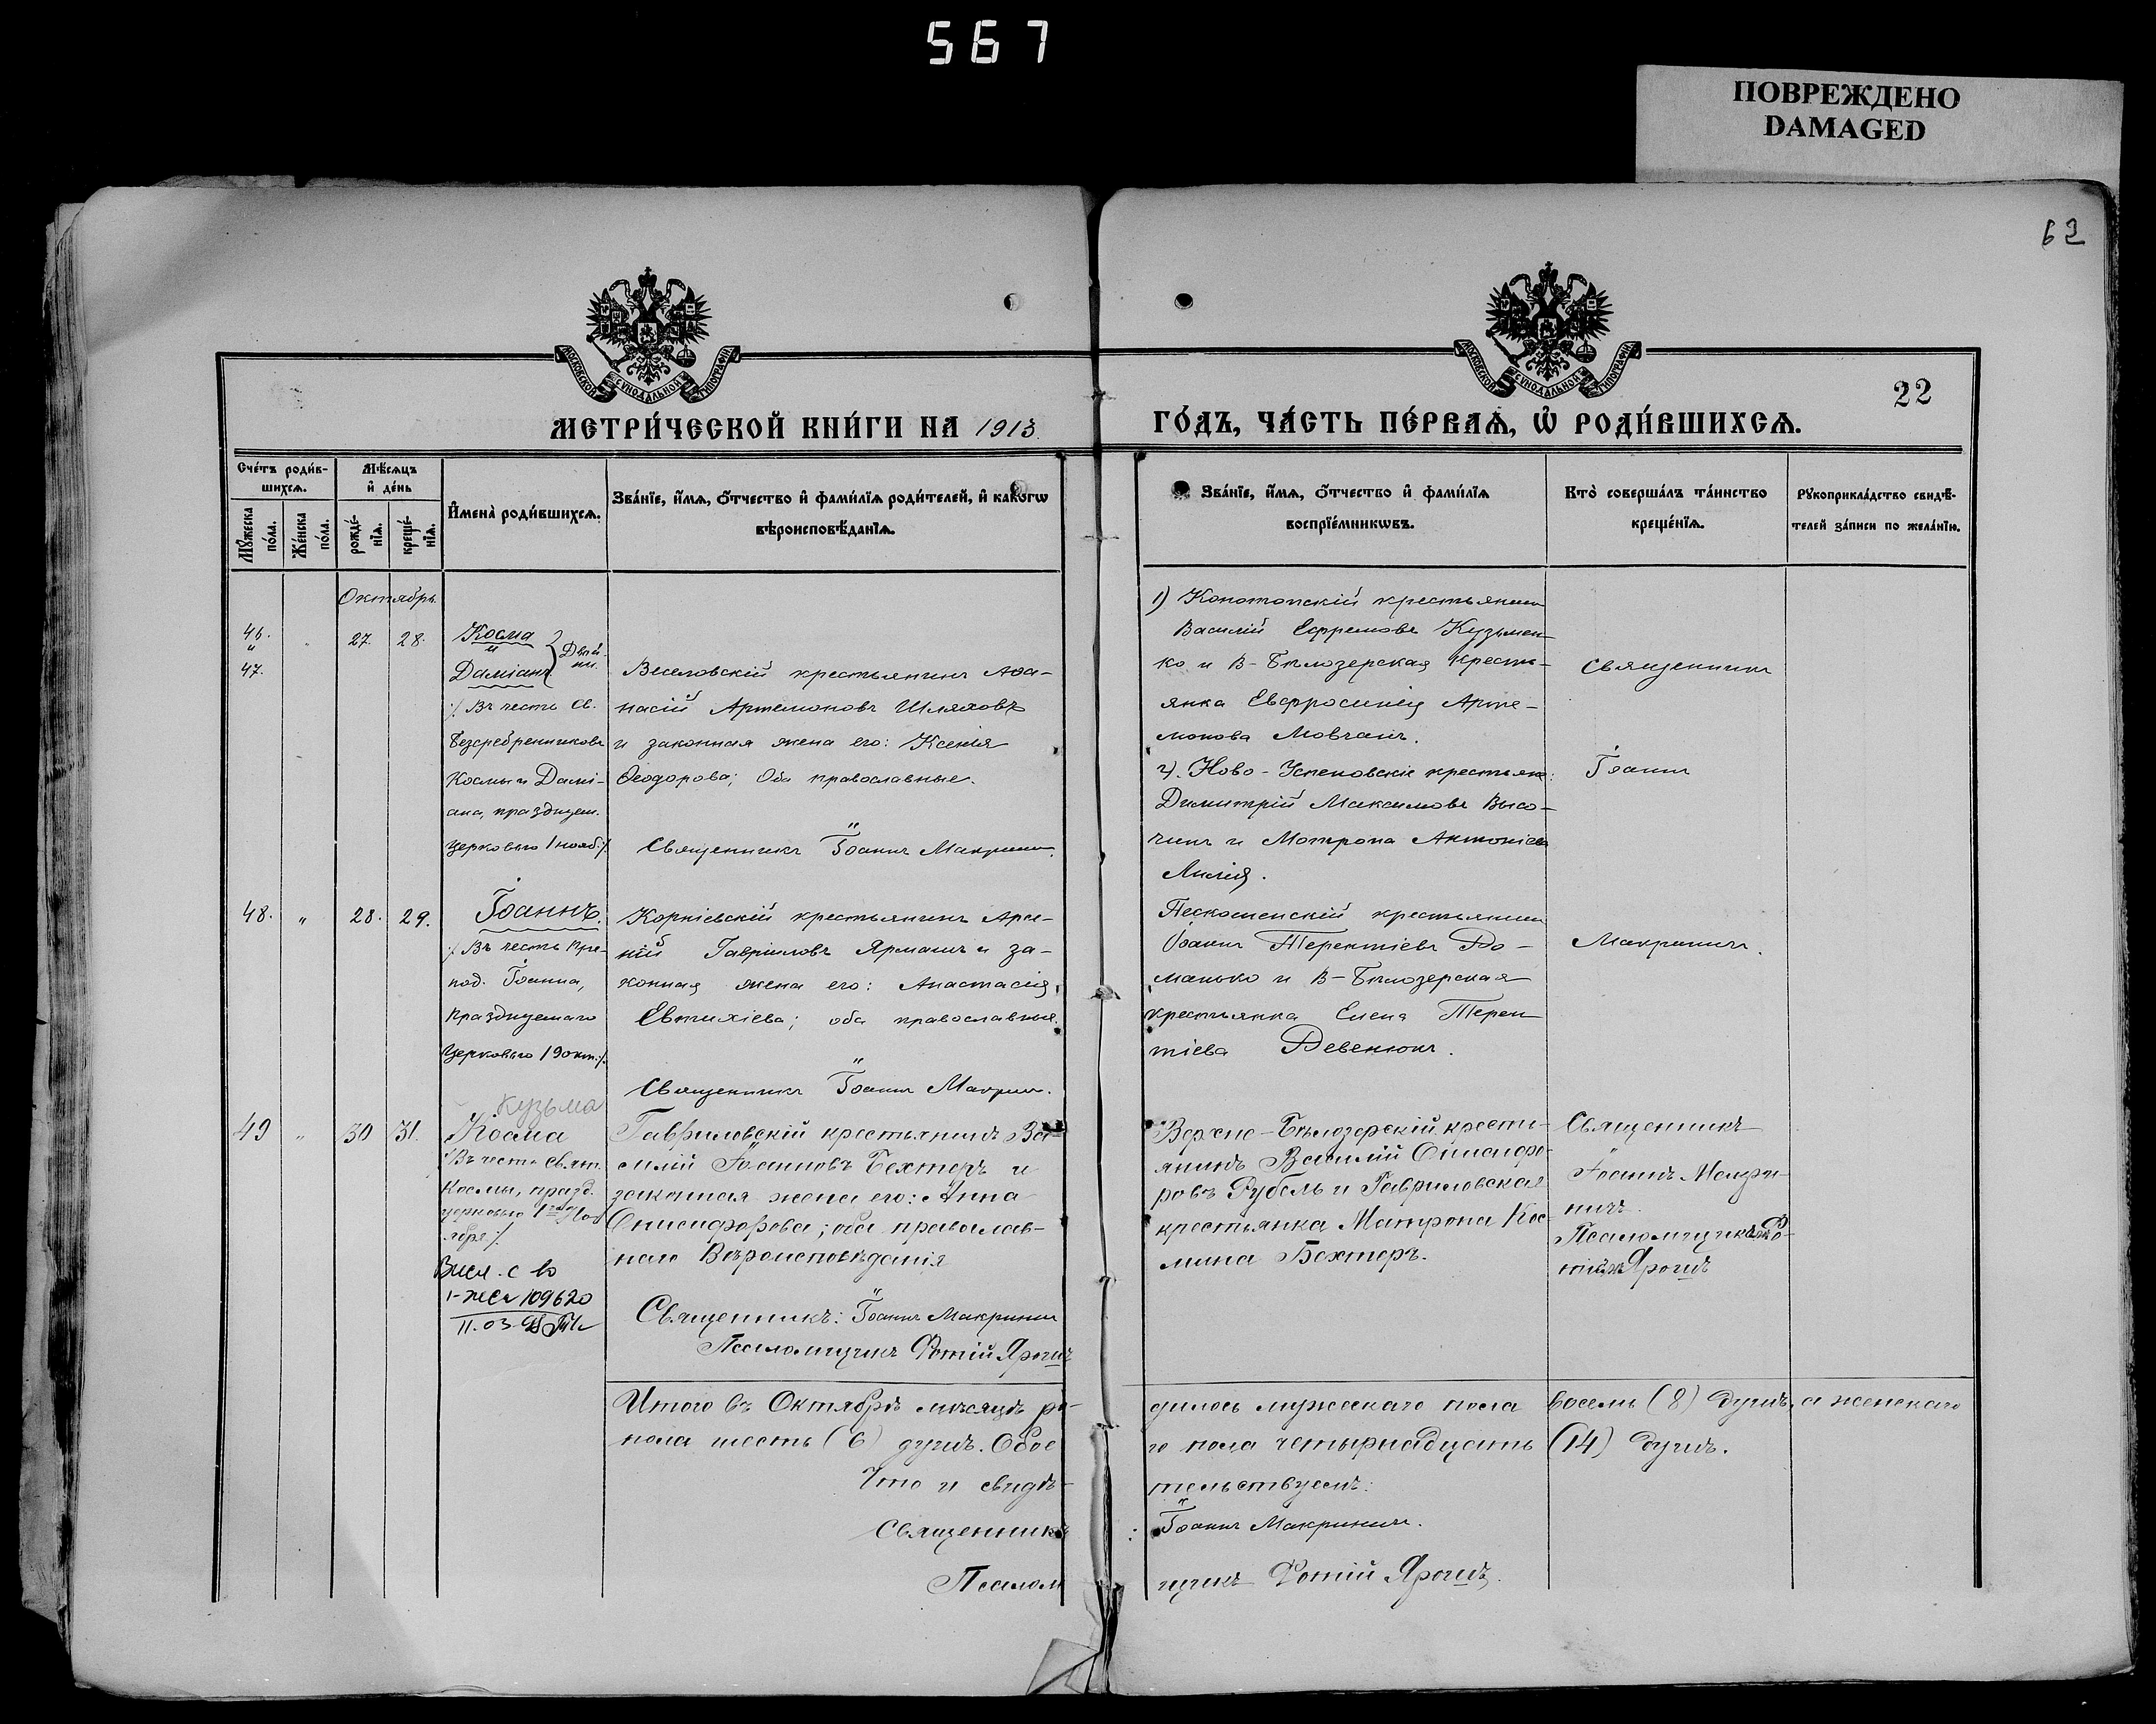 567
ПОВРЕЖДЕНО
DAMAGED
62
МОСКОВСКОЙ СѴНОДАЛЬНОЙ ТИПОГРАФІИ
МОСКОВСКОЙ СѴНОДАЛЬНОЙ ТИПОГРАФІИ
22
МЕТРИ́ЧЕСКОЙ КНИ́ГИ НА 1913.
ГО́ДЪ, ЧА́СТЬ ПЕ́РВАѦ, Ѡ҆ РОДИ́ВШИХСѦ.
Сче́тъ роди́в-
шихсѧ.
Мꙋ́жеска
по́ла.
Же́нска
по́ла.
Мѣ́сѧцъ
и҆ де́нь
рожде́-
нїѧ.
креще́-
нїѧ.
И҆мена̀ роди́вшихсѧ.
Зва́нїе, и҆́мѧ, ѻ҆́тчество и҆ фами́лїѧ роди́телей, и҆ како́гѡ
вѣроисповѣ́данїѧ.
Зва́нїе, и҆́мѧ, ѻ҆́тчество и҆ фами́лїѧ
воспрїе́мникѡвъ.
Кто̀ соверша́лъ та́инство
креще́нїѧ.
Рꙋкоприкла́дство свидѣ́-
телей за́писи по жела́нїю.
Октябрь.
46.
"
47.
"
27.
28.
Косма
и
Даміанъ
Двой-
ни.
/. Въ честь Св.
Безсребренниковъ
Космы и Дамі-
ана, празднуем.
Церковью 1 нояб./.
Веселовскій крестьянинъ Аѳа-
насій Артемоновъ Шляховъ
и законная жена его: Ксенія
Ѳеодорова; Оба православные.
Священникъ Іоаннъ Макринич.
1) Конотопскій крестьянинъ
Василій Ефремовъ Кузьмен-
ко и В-Бѣлозерская кресть-
янка Евфросинія Арте-
монова Мовчанъ.
2). Ново-Успеновскіе крестьяне:
Димитрій Максимовъ Высо-
чинъ и Матрона Антоніева
Священникъ
Іоаннъ
Макриничъ.
48.
"
28.
29.
Іоаннъ.
/. Въ честь пре-
под. Іоанна,
празднуемаго
Церковью 19 окт./.
Корніевскій крестьянинъ
Гавріиловъ Ярмашъ и за-
конная жена его: Анастасія
Евтихіева; оба православные.
Священникъ Іоаннъ Макрин.
крестьянинъ
Іоаннъ Терентіевъ До-
манько и В-Бѣлозерская
крестьянка Елена Терен-
тіева
49
"
30
31.
Кузьма
Косма
/Въ честь Свят.
Космы, празд.
церковью 1го Ноя
ября/.
109620
Гавриловскій крестьянинъ Ва-
силій Іоанновъ Бехтеръ и
законная жена его: Анна
Онисифорова; оба православ-
наго Вѣроисповѣданія
Священникъ: Іоаннъ Макринич
Псаломщикъ Фотій Ярошъ
Верхне-Бѣлозерскій крестья-
янинъ Василій Онисифо-
ровъ Рубель и Гавриловская
крестьянка Матрона Кос-
мина Бехтеръ.
Священникъ
Іоаннъ Макри-
ничъ.
Псаломщикъ Фо-
тій Ярошъ
Итого въ Октябрѣ мѣсяцѣ ро-
дилось мужескаго пола восемь (8) душъ, а женскаго
пола шесть (6) душъ. Обое
го пола четырнадцать (14) душъ.
Что и свидѣ-
тельствуемъ:
Священникъ
: Іоаннъ Макриничъ.
Псалом
щикъ Фотій Ярошъ.